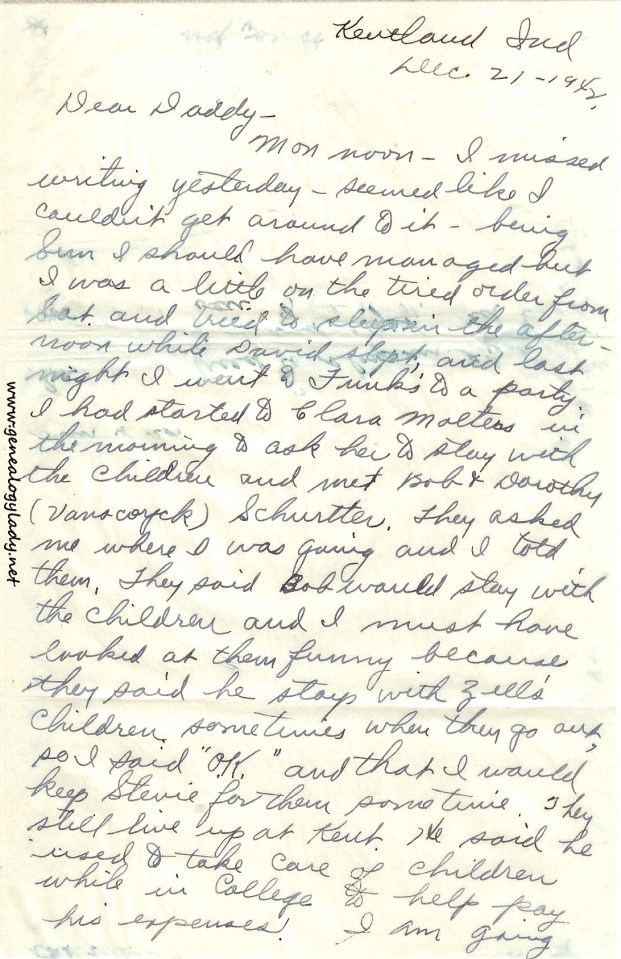 Kentland Ind
Dec. 21-1942.
Dear Daddy-
Mon noon - I missed
writing yesterday - seemed like I
couldn't get around to it - being
Sun I should have managed but
I was a little on the tired order from
Sat. and tried to sleep in the after-
noon while David slept, and last
night I went to Funk's to a party.
I had started to Clara Molters in
the morning to ask her to stay with
the children and met Bob & Dorothy
(Vanacoyck) Schurtter. They asked
me where I was going and I told
them. They said Bob would stay with
the children and I must have
looked at them funny because
they said he stays with Zell's
children sometimes when they go out,
so I said "O.K." and that I would
keep Stevie for them sometime. They
still live up at Kent. He said he
used to take care of children
while in College to help pay
his expenses! I am going
www.genealogylady.net